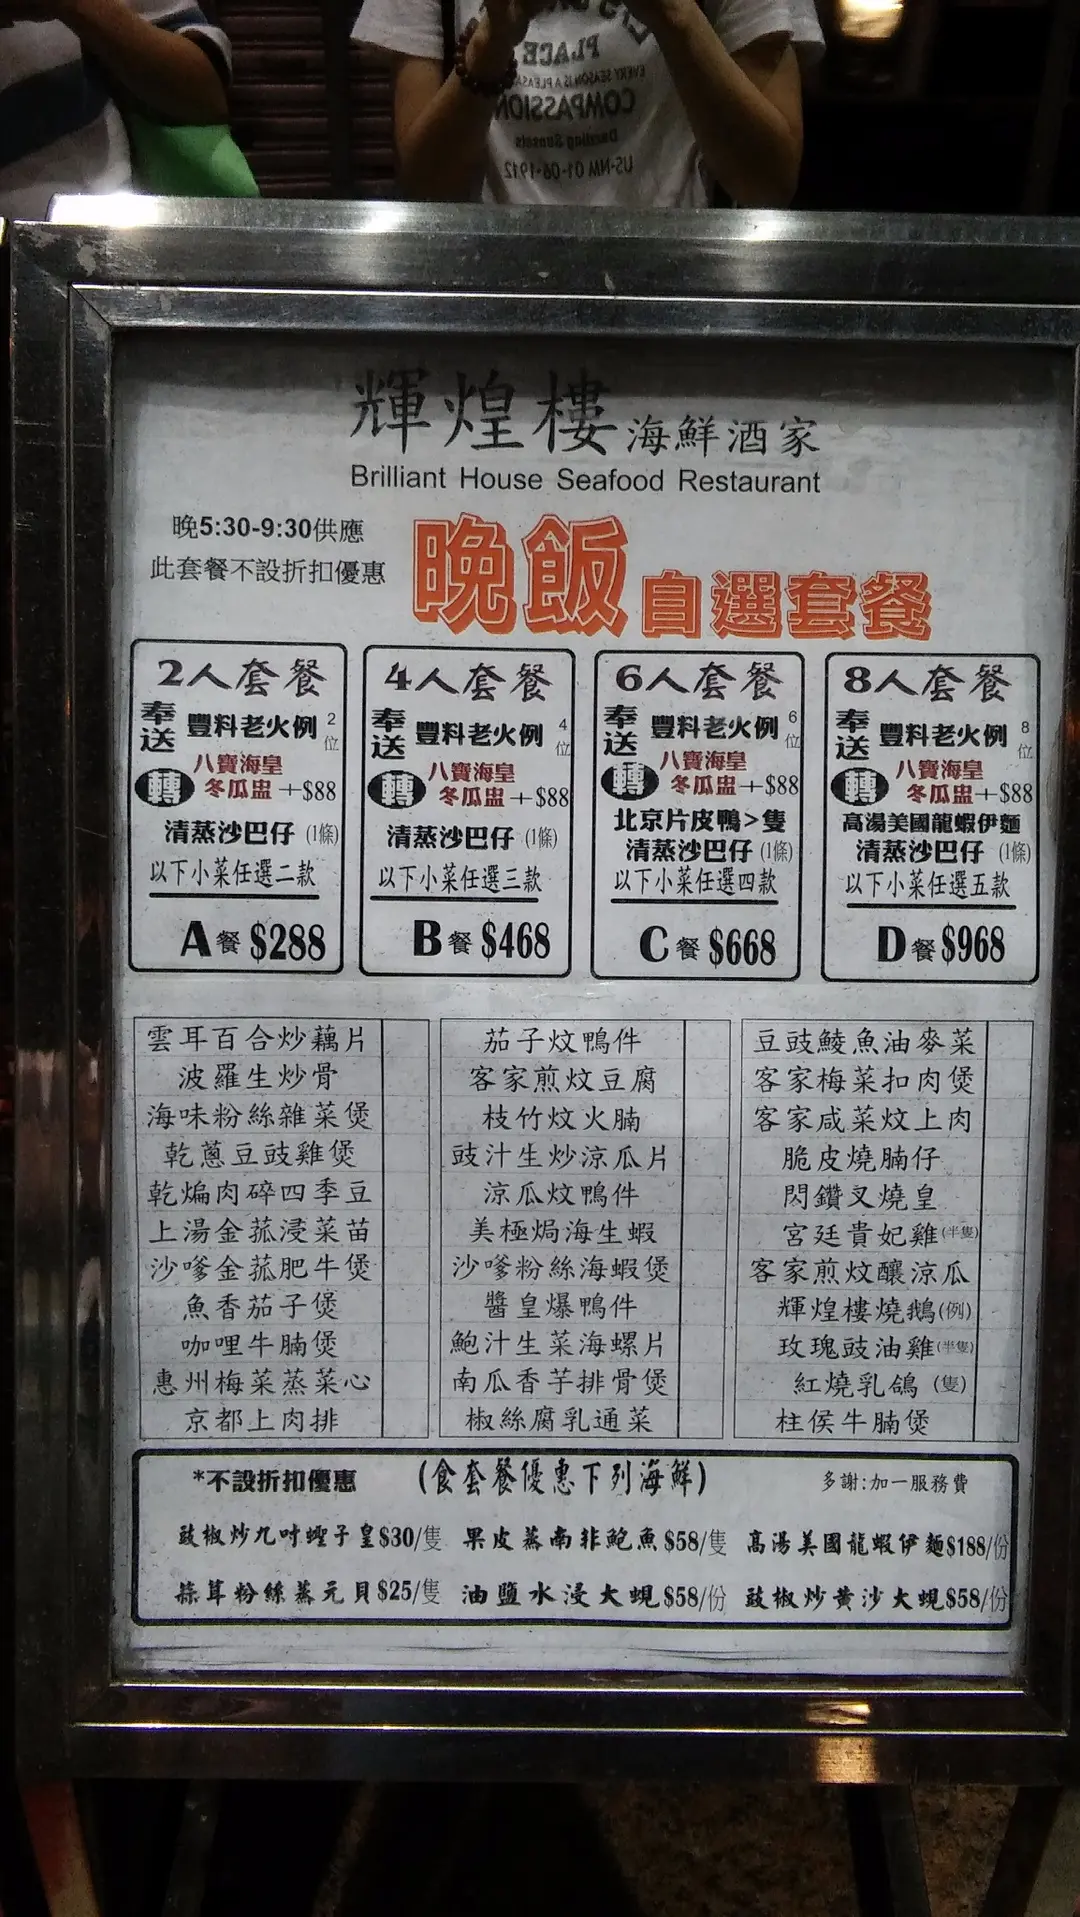 PLACE
EVERY SEASON IS A PLEASA
COMPASSION
Dazzling Sunsets
US-NM 01-06-1912
輝煌樓海鮮酒家
Brilliant House Seafood Restaurant
晚5:30-9:30供應
此套餐不設折扣優惠
晚飯自選套餐
2人套餐
奉送 豐料老火例 2位
轉 八寶海皇冬瓜盅 +$88
清蒸沙巴仔 (1條)
以下小菜任選二款
A餐 $288
4人套餐
奉送 豐料老火例 4位
轉 八寶海皇冬瓜盅 +$88
清蒸沙巴仔 (1條)
以下小菜任選三款
B餐 $468
6人套餐
奉送 豐料老火例 6位
轉 八寶海皇冬瓜盅 +$88
北京片皮鴨>隻
清蒸沙巴仔 (1條)
以下小菜任選四款
C餐 $668
8人套餐
奉送 豐料老火例 8位
轉 八寶海皇冬瓜盅 +$88
高湯美國龍蝦伊麵
清蒸沙巴仔 (1條)
以下小菜任選五款
D餐 $968
雲耳百合炒藕片
波羅生炒骨
海味粉絲雜菜煲
乾蔥豆豉雞煲
乾煸肉碎四季豆
上湯金菰浸菜苗
沙嗲金菰肥牛煲
魚香茄子煲
咖哩牛腩煲
惠州梅菜蒸菜心
京都上肉排
茄子炆鴨件
客家煎炆豆腐
枝竹炆火腩
豉汁生炒涼瓜片
涼瓜炆鴨件
美極焗海生蝦
沙嗲粉絲海蝦煲
醬皇爆鴨件
鮑汁生菜海螺片
南瓜香芋排骨煲
椒絲腐乳通菜
豆豉鯪魚油麥菜
客家梅菜扣肉煲
客家咸菜炆上肉
脆皮燒腩仔
閃鑽叉燒皇
宮廷貴妃雞(半隻)
客家煎炆釀涼瓜
輝煌樓燒鵝(例)
玫瑰豉油雞(半隻)
紅燒乳鴿 (隻)
柱侯牛腩煲
*不設折扣優惠 (食套餐優惠下列海鮮) 多謝:加一服務費
豉椒炒九吋蟶子皇$30/隻 果皮蒸南非鮑魚$58/隻 高湯美國龍蝦伊麵$188/份
蒜茸粉絲蒸元貝$25/隻 油鹽水浸大蜆$58/份 豉椒炒黃沙大蜆$58/份